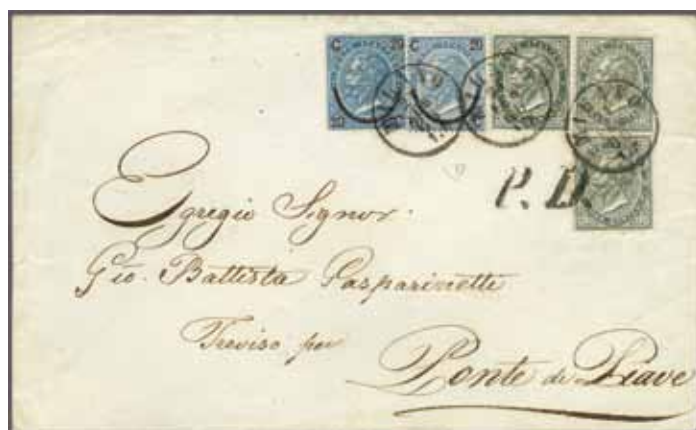 C 20 C 20
20 20
P. D.
Egregio Signor.
Gio. Battista Gasparinetti
Treviso per
Ponte di Piave